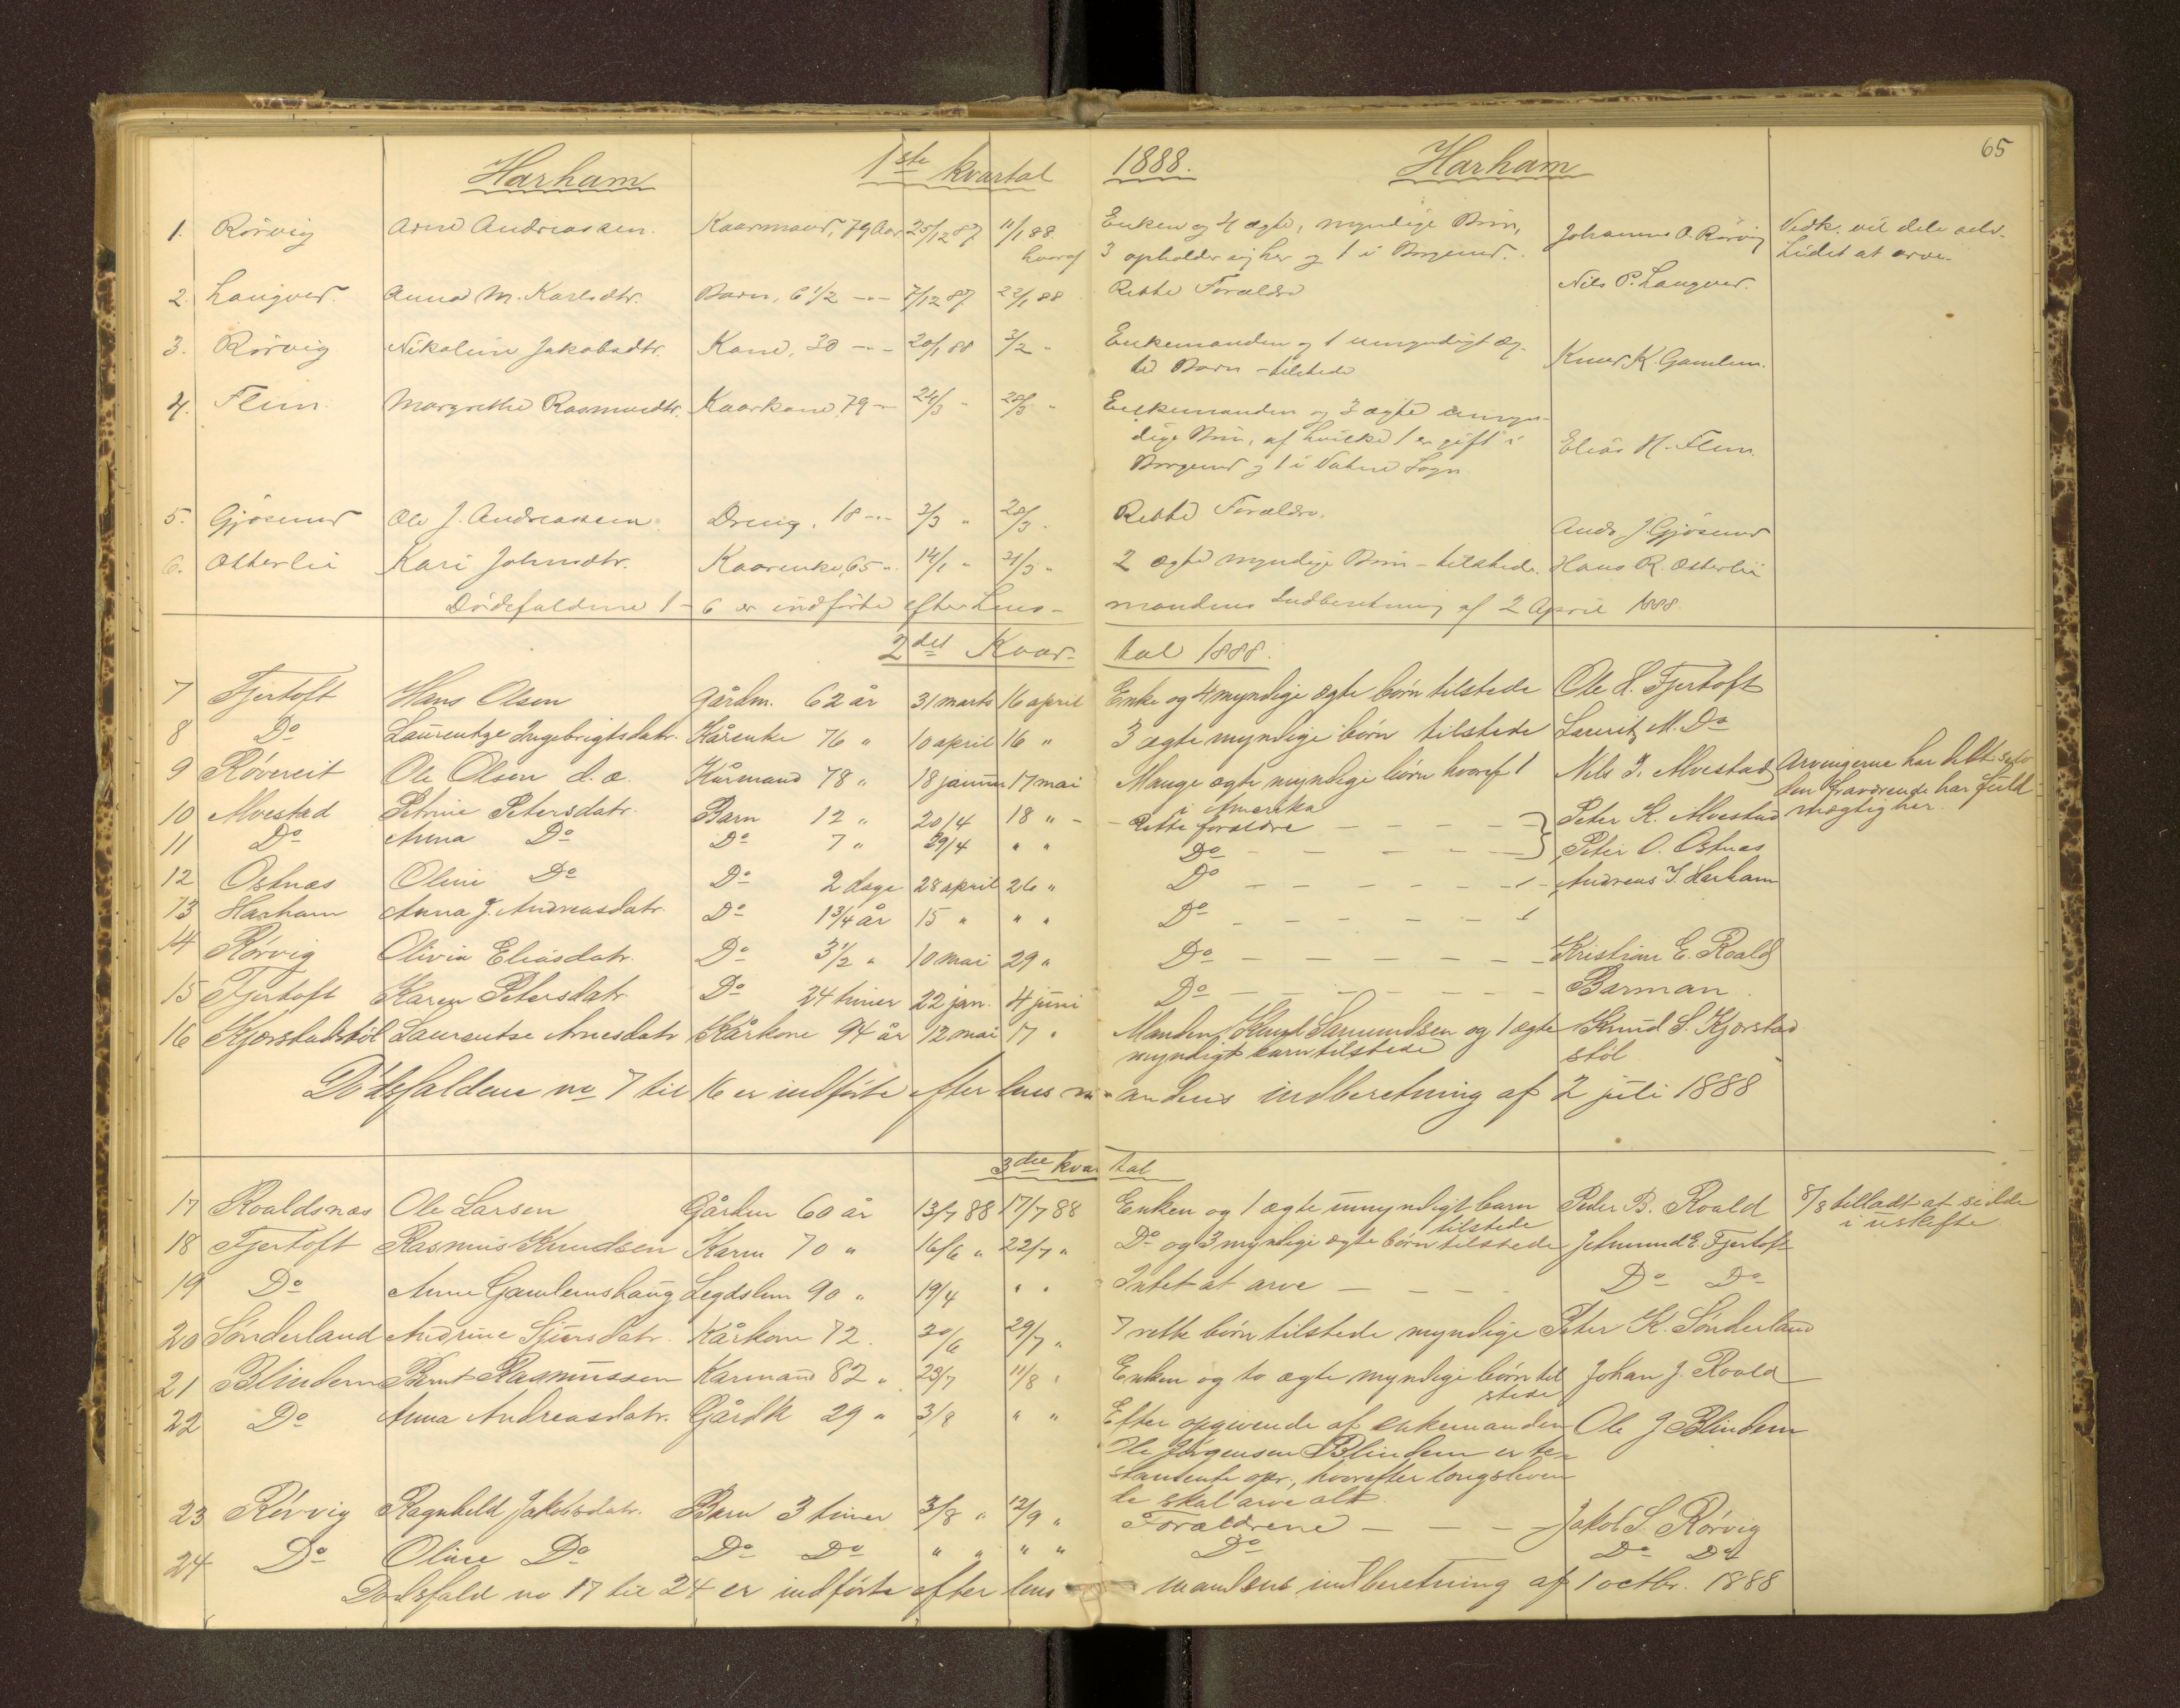 65
Harham 1ste kvartal 1888. Harham
1. Rörvig Arne Andreassen. Kaarmand, 79 Aar 25/12 87 11/1 88. Enken og 4 ægte, myndige Börn, Johannes O. Rörvig Vedk. vil dele selv.
hvoraf 3 opholder sig her og 1 i Borgund. Lidet at arve.
2. Langver. Anne M. Karlsdtr. Barn, 6 1/2 -"- 7/12 87 22/1 88 Rette Forældre Nils P. Langver.
3. Rörvig Nikoline Jakobsdtr. Kone, 30 -"- 20/1 88 3/2 " Enkemanden og 1 umyndigt æg-
te Barn - tilstede Knud K. Gamlem.
4. Flem Margrethe Rasmusdtr. Kaarkone, 79 - 24/3 " 28/3 " Enkemanden og 3 ægte
dige Börn, af hvilke 1 er gift i
Borgund og 1 i Vatne Sogn. Elias H. Flem
5. Gjösund Ole J. Andreassen Dreng, 18 -"- 3/3 " 28/3 " Rette Forældre. Ands. J. Gjösund
6. Österlii Kari Johnsdtr. Kaarenke, 65 " 14/1 " 31/3 " 2 ægte myndige Börn - tilstede. Hans R. Österlii
Dödsfaldene 1-6 er indförte efter Lens-mandens Indberetning af 2 April 1888.
2det Kvar-tal 1888.
7 Fjertoft Hans Olsen Gårdm. 62 år 31 marts 16 april Enke og 4 myndige ægte börn tilstede Ole H. Fjertoft
8 Do Laurentze Ingebrigtsdatr. Kårenke 76 " 10 april 16 " 3 ægte myndige börn tilstede Laurits M. Do
9 Rövereit Ole Olsen d. æ. Kårmand 78 " 18 januar 17 mai Mange ægte myndige börn hvoraf 1 Nils J. Alvestad Arvingerne har delt selv
i Amerika den fraværende har fuld-
10 Alvestad Petrine Petersdatr. Barn 12 " 20/4 18 " - Rette forældre - - - - Peter K. Alvestad mægtig her.
11 Do Anna Do Do 7 " 29/4 " " Do - - - - - Peter O. Östnæs
12 Östnæs Oline Do Do 2 dage 28 april 26 " Do - - - - - Andreas I. Harham
13 Harham Anna J. Andreasdatr. Do 1 3/4 år 15 " " " Do - - - - -
14 Rörvig Olivia Eliasdatr. Do 3 1/2 " 10 mai 29 " Do - - - - - Kristian E. Roald
15 Fjertoft Karen Petersdatr Do 24 timer 22 jan. 4 juni Do - - - - - Barman
16 Kjærstadstöl Laurentse Arnesdatr Kårkone 94 år 12 mai 17 " Manden, Knud Samundsen og 1 ægte Knud S. Kjærstad
myndigt barn tilstede stöl
Dödsfaldene no 7 til 16 er indförte efter lensm-andens indberetning af 2 juli 1888
3die kvar-tal
17 Roaldsnæs Ole Larsen Gårdm 60 år 13/7 88 17/7 88 Enken og 1 ægte umyndigt barn Peder B. Roald 8/8 tilladt at sidde
tilstede i uskifte
18 Fjertoft Rasmus Knudsen Karm 70 " 16/6 " 22/7 " Do og 3 myndige ægte börn tilstede Jetmund E. Fjertoft
19 Do Anne Gamlemshaug Legdslem 90 " 19/4 " " Intet at arve - - - - Do Do
20 Sönderland Andrine Sjursdatr. Kårkone 72 " 30/6 29/7 " 7 rette börn tilstede myndige Peter K. Sönderland
21 Blindem Bernt Rasmussen Karmand 82 " 23/7 11/8 " Enken og to ægte myndige börn til Johan J. Roald
stede
22 Do Anna Andreasdatr. Gårdk 29 " 3/8 " " Efter opgivende af enkemanden Ole J Blindem
Ole Jörgensen Blindem er te-
stamente opr., hvorefter længstleven
de skal arve alt.
23 Rörvig Ragnhild Jakobsdatr. Barn 3 timer 3/8 " 12/9 " Forældrene - - - Jakob S. Rörvig
24 Do Oline Do Do Do " " " " Do Do Do
Dödsfald no 17 til 24 er indförte efter lens-mandens indberetning af 1 octbr. 1888